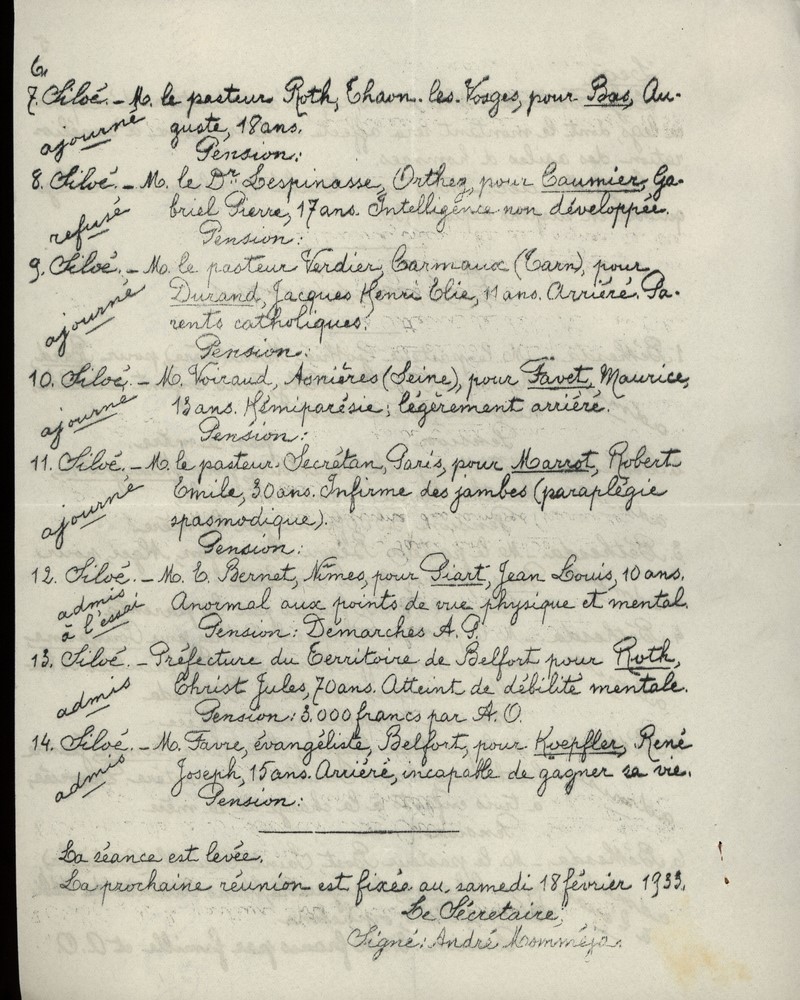 6.
7. Siloé. – M. le pasteur Roth, Thaon-les-Vosges, pour Bas, Au-
ajourné
guste, 18 ans.
Pension:
8. Siloé. – M. le Dr Lespinasse, Orthez, pour Caumier, Ga-
refusé
briel Pierre, 17 ans. Intelligence non développée.
Pension:
9. Siloé. – M. le pasteur Verdier, Carmaux (Tarn), pour
ajourné
Durand, Jacques Henri Elie, 11 ans. Arriéré. Pa-
rents catholiques.
Pension:
10. Siloé. – M. Voiraud, Asnières (Seine), pour Favet, Maurice,
ajourné
13 ans. Hémiparésie; légèrement arriéré.
Pension:
11. Siloé. – M. le pasteur Secrétan, Paris, pour Marrot, Robert
ajourné
Emile, 30 ans. Infirme des jambes (paraplégie
spasmodique).
Pension:
12. Siloé. – M. E. Bernet, Nîmes, pour Piart, Jean Louis, 10 ans.
admis
à l'essai
Anormal aux points de vue physique et mental.
Pension: Démarches A.P.
13. Siloé. – Préfecture du Territoire de Belfort pour Roth,
admis
Christ Jules, 70 ans. Atteint de débilité mentale.
Pension: 3.000 francs par A.O.
14. Siloé. – M. Favre, évangéliste, Belfort, pour Koepfler, René
admis
Joseph, 15 ans. Arriéré, incapable de gagner sa vie.
Pension:
La séance est levée.
La prochaine réunion est fixée au samedi 18 février 1933.
Le Secrétaire,
Signé: André Mommeja.